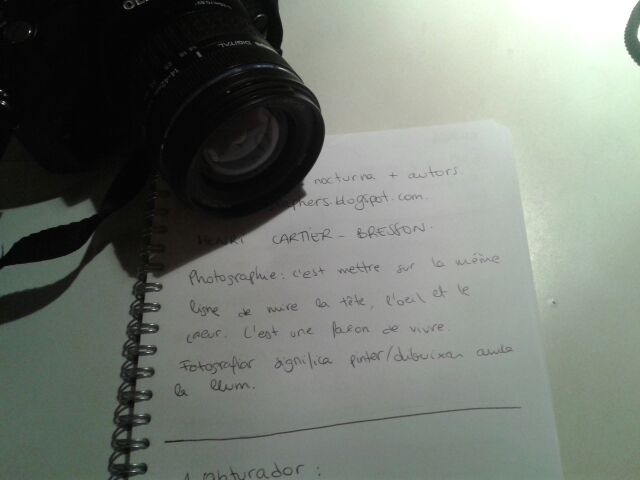 DIGITAL
14-42mm
nocturna + autors
.blogspot.com.
HENRI CARTIER - BRESSON.
Photographie: c'est mettre sur la même
ligne de mire la tête, l'oeil et le
coeur. C'est une façon de vivre.
Fotografiar significa pinter/dibuixar amb
la llum.
obturador: